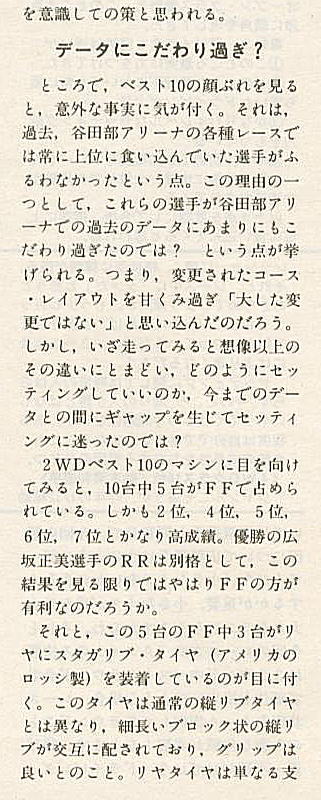 を意識しての策と思われる。
データにこだわり過ぎ？
ところで，ベスト10の顔ぶれを見る
と，意外な事実に気が付く。それは，
過去，谷田部アリーナの各種レースで
は常に上位に食い込んでいた選手がふ
るわなかったという点。この理由の一
つとして，これらの選手が谷田部アリ
ーナでの過去のデータにあまりにもこ
だわり過ぎたのでは？　という点が挙
げられる。つまり，変更されたコース
・レイアウトを甘くみ過ぎ「大した変
更ではない」と思い込んだのだろう。
しかし，いざ走ってみると想像以上の
その違いにとまどい，どのようにセッ
ティングしていいのか，今までのデー
タとの間にギャップを生じてセッティ
ングに迷ったのでは？
２ＷＤベスト10のマシンに目を向け
てみると，10台中５台がＦＦで占めら
れている。しかも２位，４位，５位，
６位，７位とかなり高成績。優勝の広
坂正美選手のＲＲは別格として，この
結果を見る限りではやはりＦＦの方が
有利なのだろうか。
それと，この５台のＦＦ中３台がリ
ヤにスタガリブ・タイヤ（アメリカの
ロッシ製）を装着しているのが目に付
く。このタイヤは通常の縦リブタイヤ
とは異なり，細長いブロック状の縦リ
ブが交互に配されており，グリップは
良いとのこと。リヤタイヤは単なる支